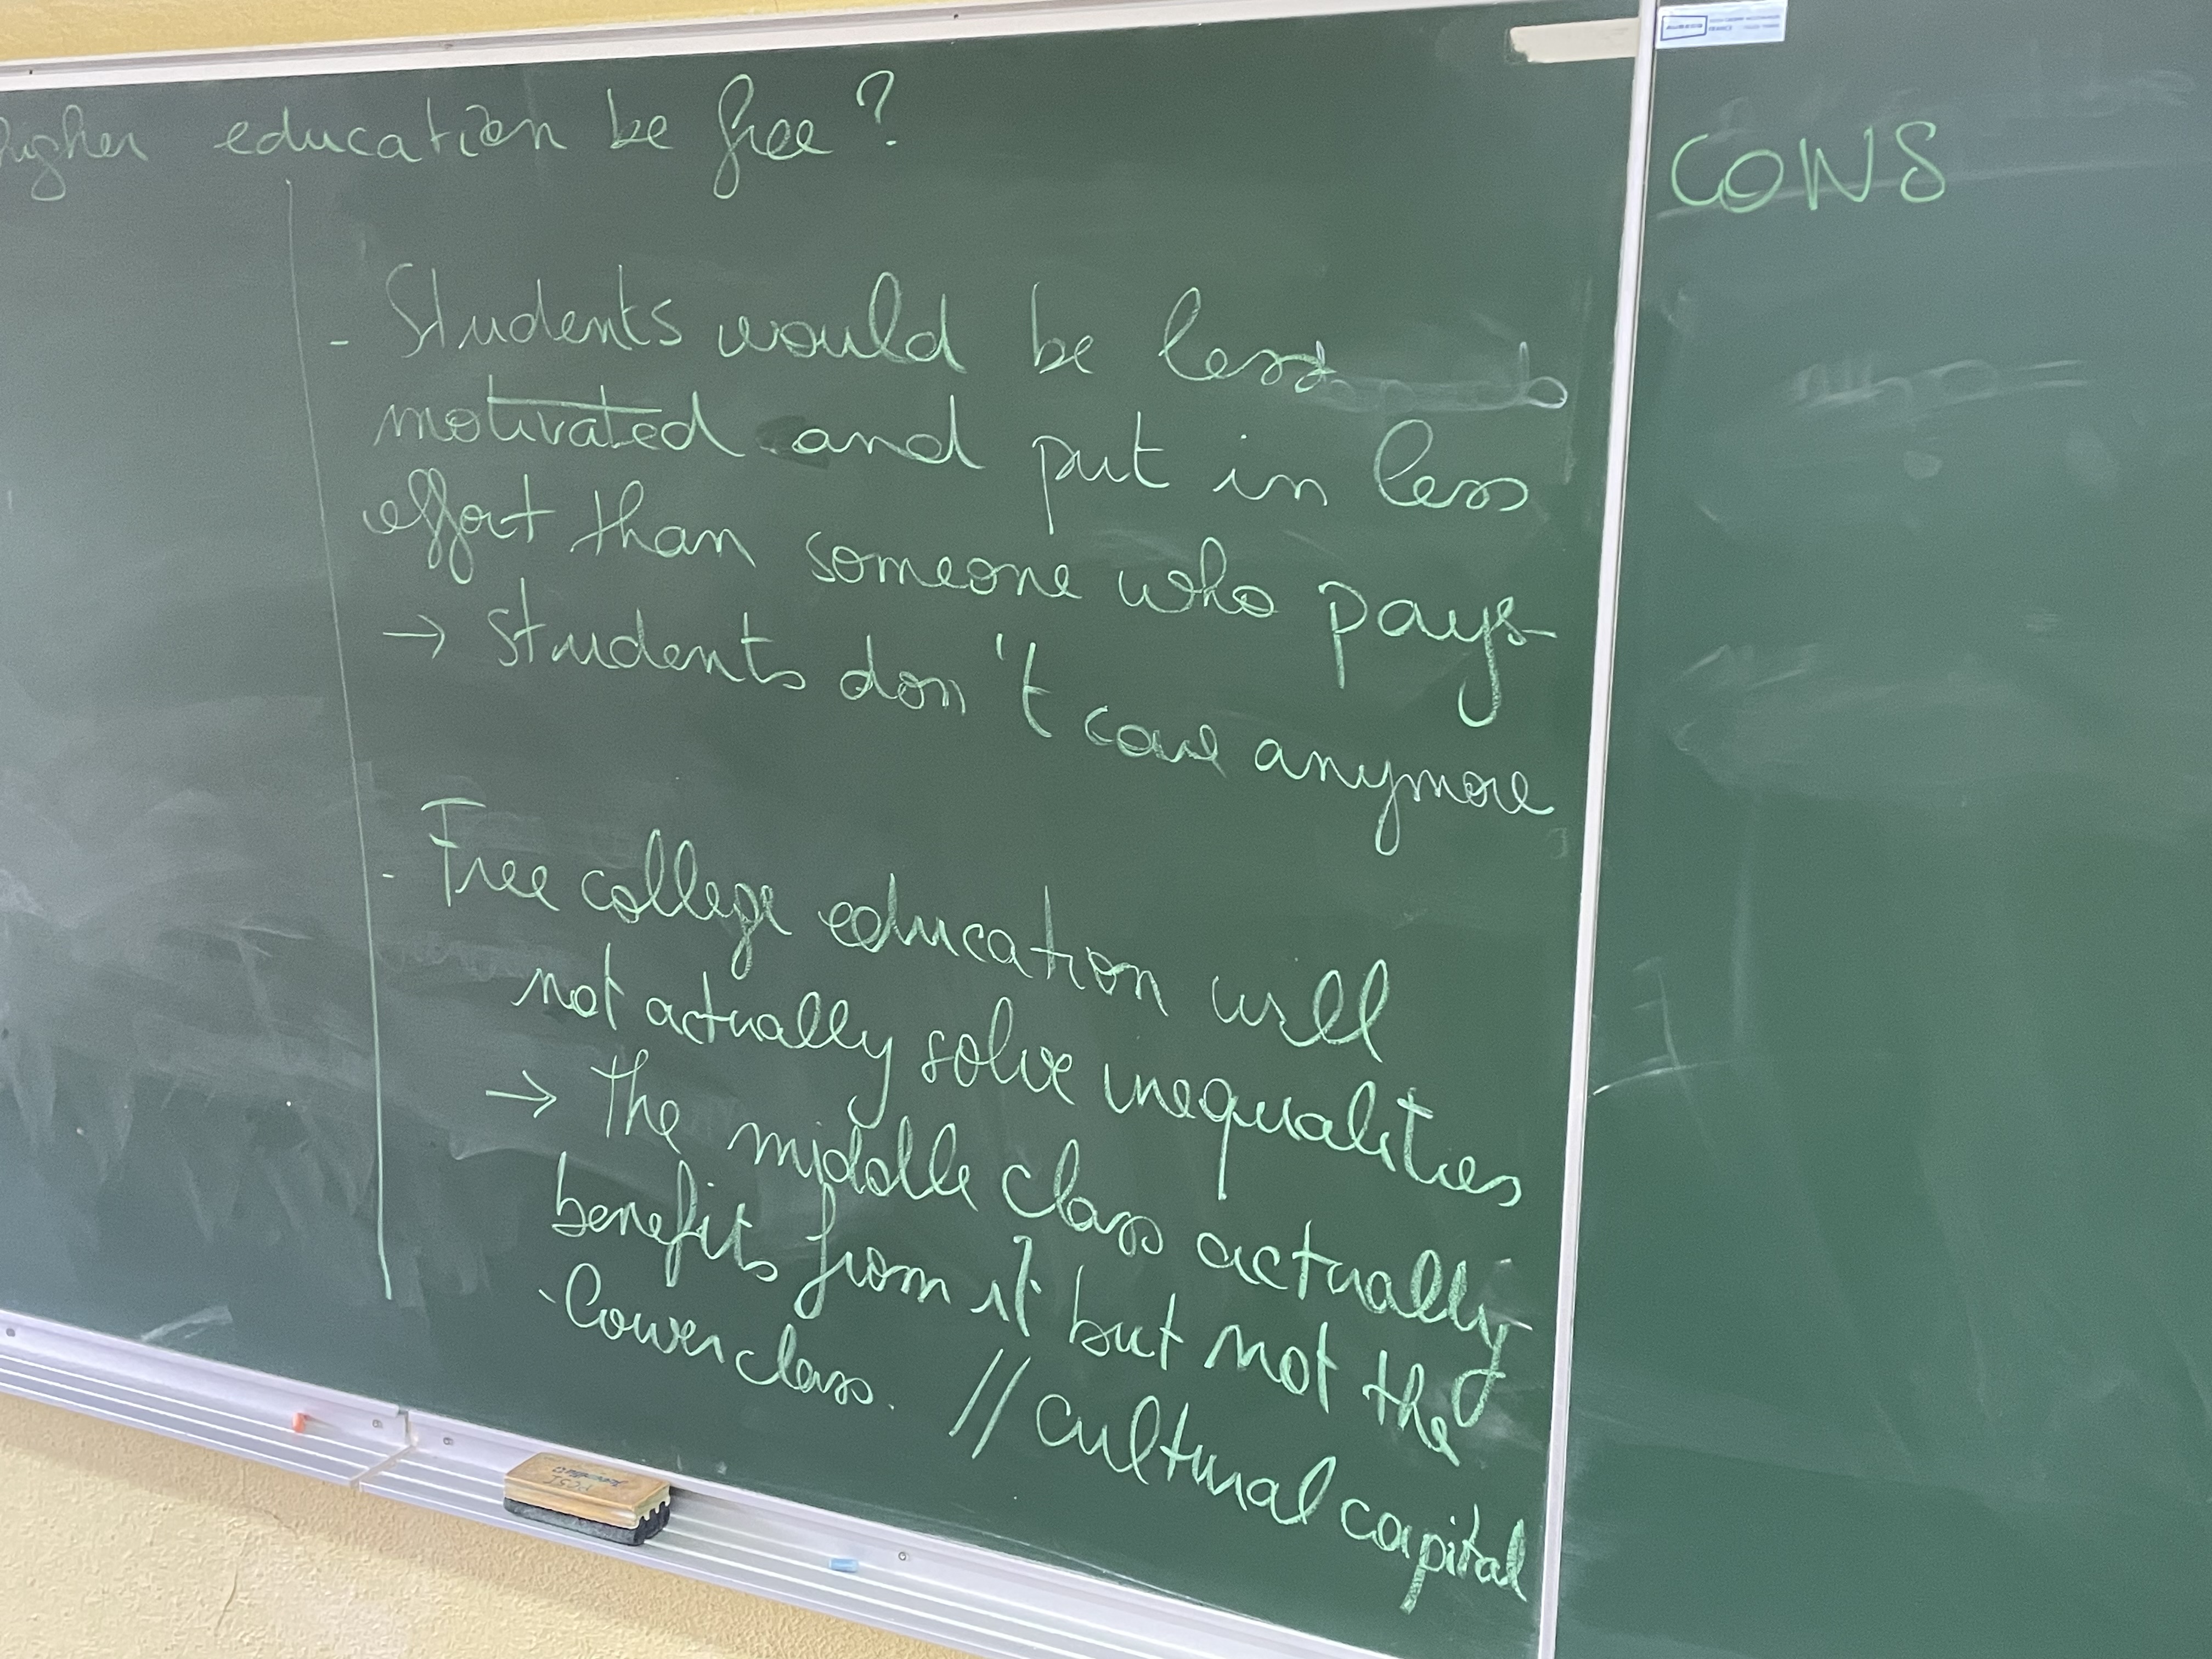 higher education be free?
CONS
- Students would be less
motivated and put in less
effort than someone who pays
→ students don't care anymore
- Free college education will
not actually solve inequalities
→ the middle class actually
benefits from it but not the
lower class. // cultural capital
FRANCE